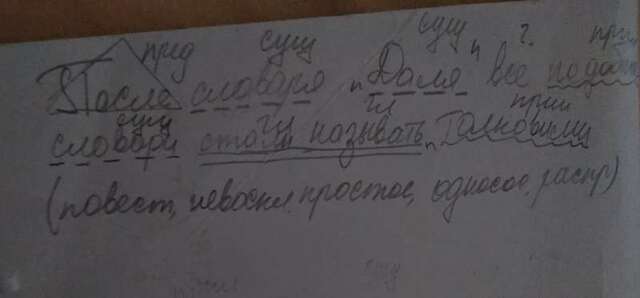 пред сущ сущ ч. прил
После словаря "Даля" все подоб
сущ гл гл прил
словари стали называть "Толковыми
(повест, невоскл. простое, односос, распр)